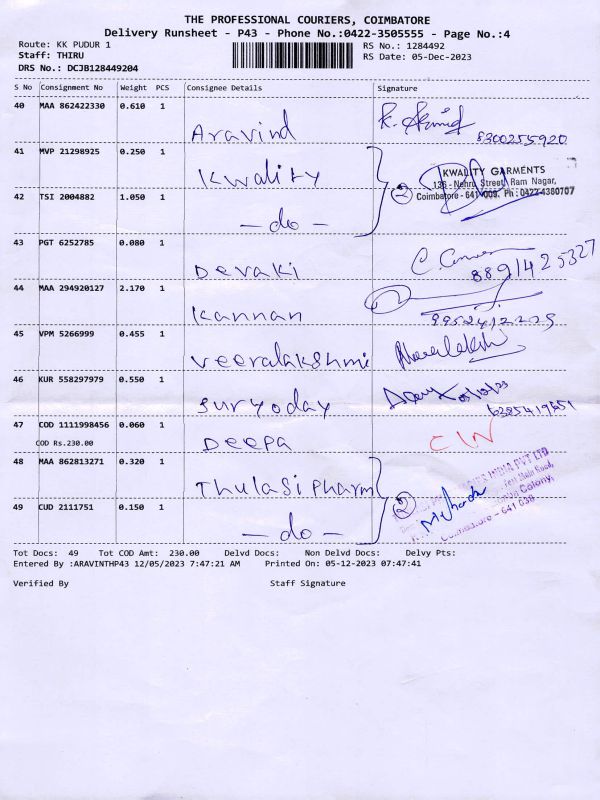 THE PROFESSIONAL COURIERS, COIMBATORE
Delivery Runsheet - P43 - Phone No.:0422-3505555 - Page No.:4
Route: KK PUDUR 1 RS No.: 1284492
Staff: THIRU RS Date: 05-Dec-2023
DRS No.: DCJB128449204
S No Consignment No Weight PCS Consignee Details Signature
40 MAA 862422330 0.610 1
Aravind 8300255920
41 MVP 21298925 0.250 1
Kwality 2 KWALITY GARMENTS
136 - Nehru Street, Ram Nagar,
42 TSI 2004882 1.050 1 Coimbatore - 641 009. Ph : 0422-4380707
- do -
43 PGT 6252785 0.080 1
Devaki 8891425327
44 MAA 294920127 2.170 1
Kannan 9952412225
45 VPM 5266999 0.455 1
Veeralakshmi
46 KUR 558297979 0.550 1
Suryoday 6385419651
47 COD 1111998456 0.060 1
COD Rs.230.00 Deepa C/N
48 MAA 862813271 0.320 1
Thulasi Pharm 2 INDIA PVT LTD
Colony,
49 CUD 2111751 0.150 1 Coimbatore - 641 038
- do -
Tot Docs: 49 Tot COD Amt: 230.00 Delvd Docs: Non Delvd Docs: Delvy Pts:
Entered By :ARAVINTHP43 12/05/2023 7:47:21 AM Printed On: 05-12-2023 07:47:41
Verified By Staff Signature